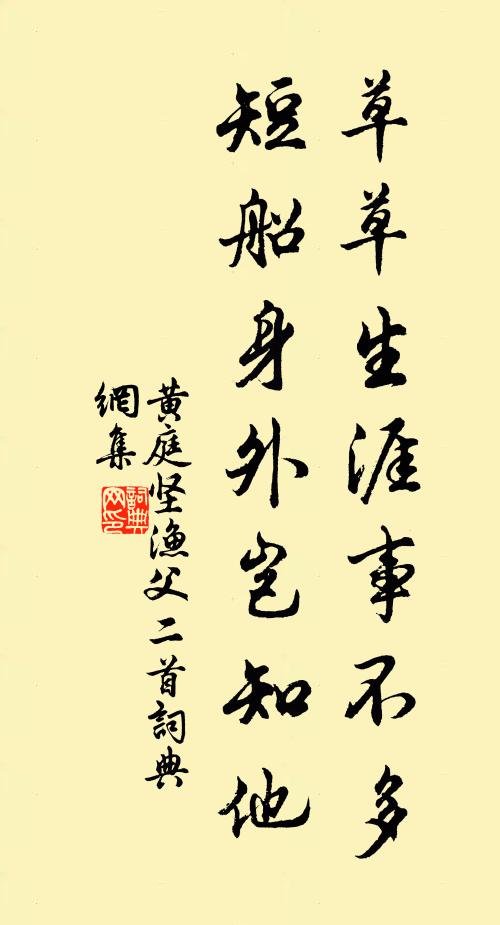 草草生涯事不多
短船身外岂知他
黄庭坚渔父二首詞典
網集
詞典
网印